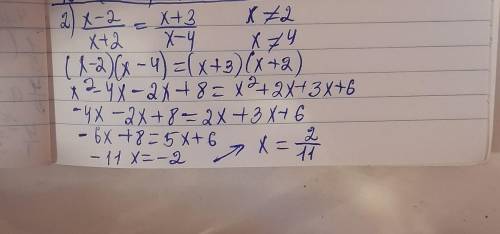 2) (x-2)/(x+2) = (x+3)/(x-4) x≠2
x≠4
(x-2)(x-4)=(x+3)(x+2)
x²-4x-2x+8=x²+2x+3x+6
-4x-2x+8=2x+3x+6
-6x+8=5x+6
-11x=-2 → x=2/11